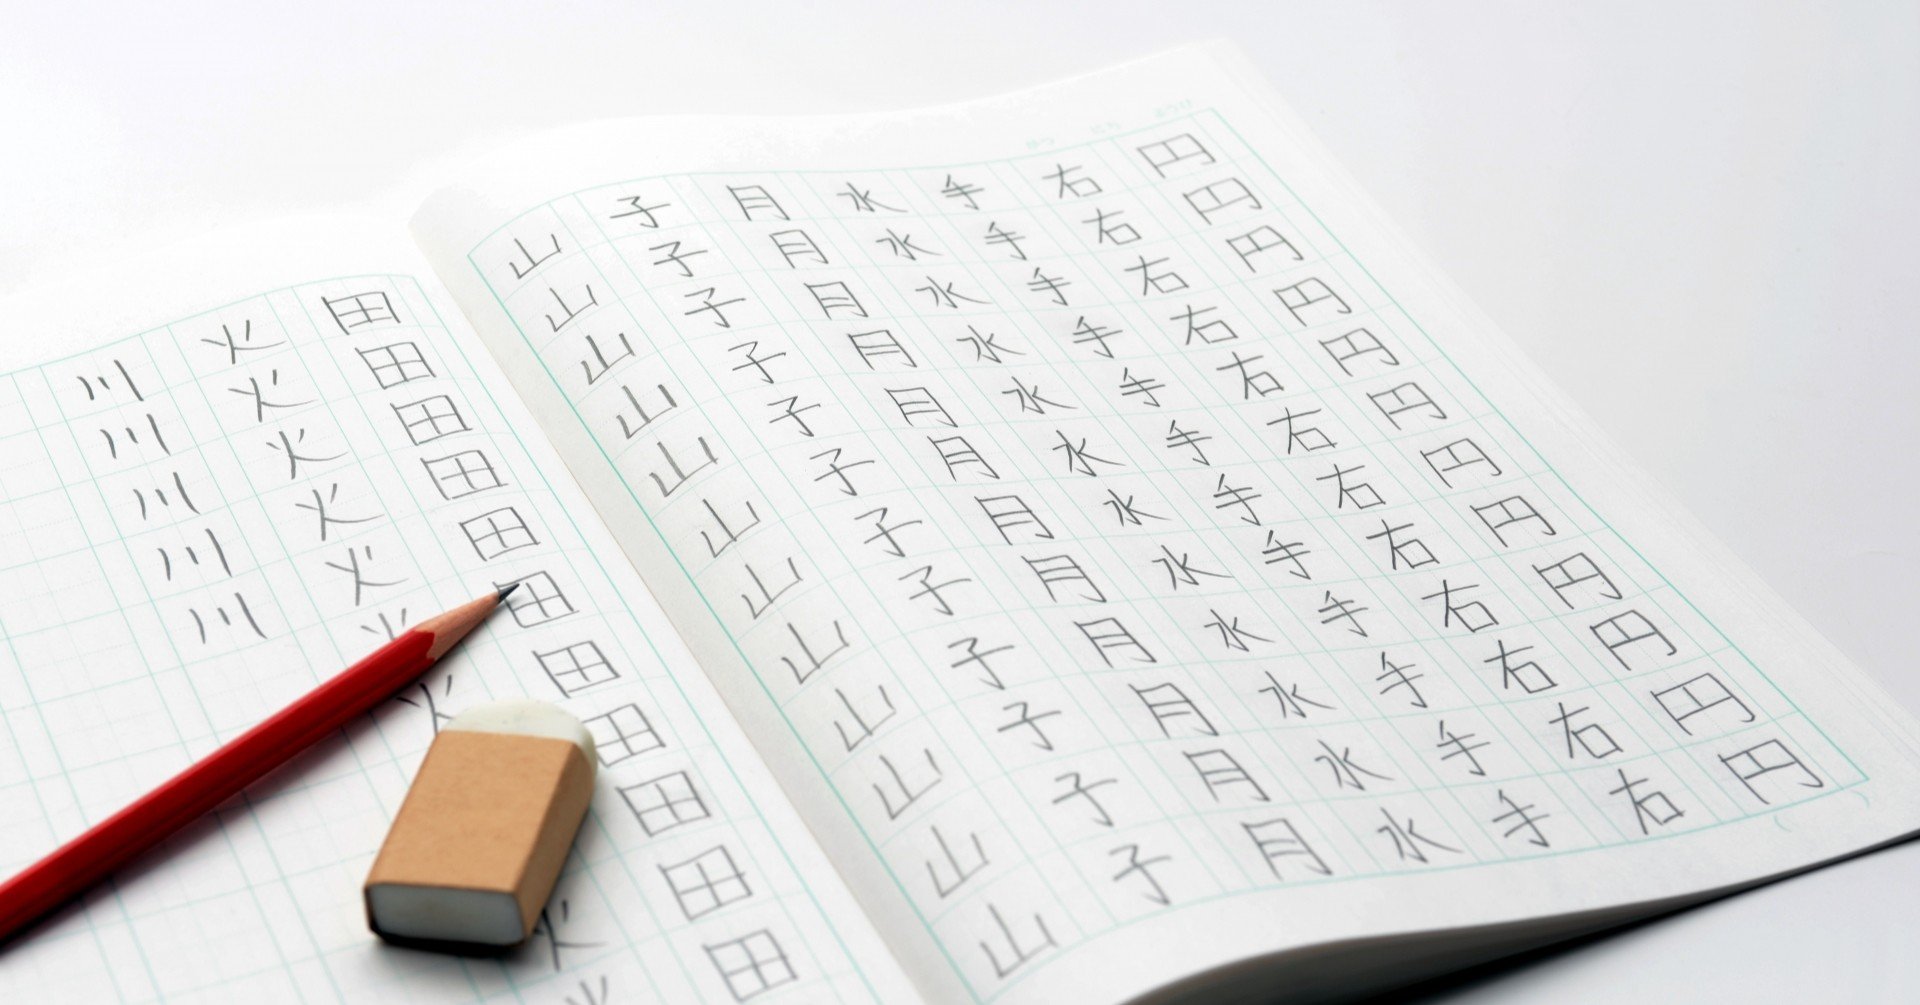 がつ にち ようび
円円円円円円円円円円円円
右右右右右右右右右右右右
手手手手手手手手手手手手
水水水水水水水水水水水水
月月月月月月月月月月月月
子子子子子子子子子子子子
山山山山山山山山山山山山
田田田田田田田田田田田
火火火火火火火火火
川川川川川